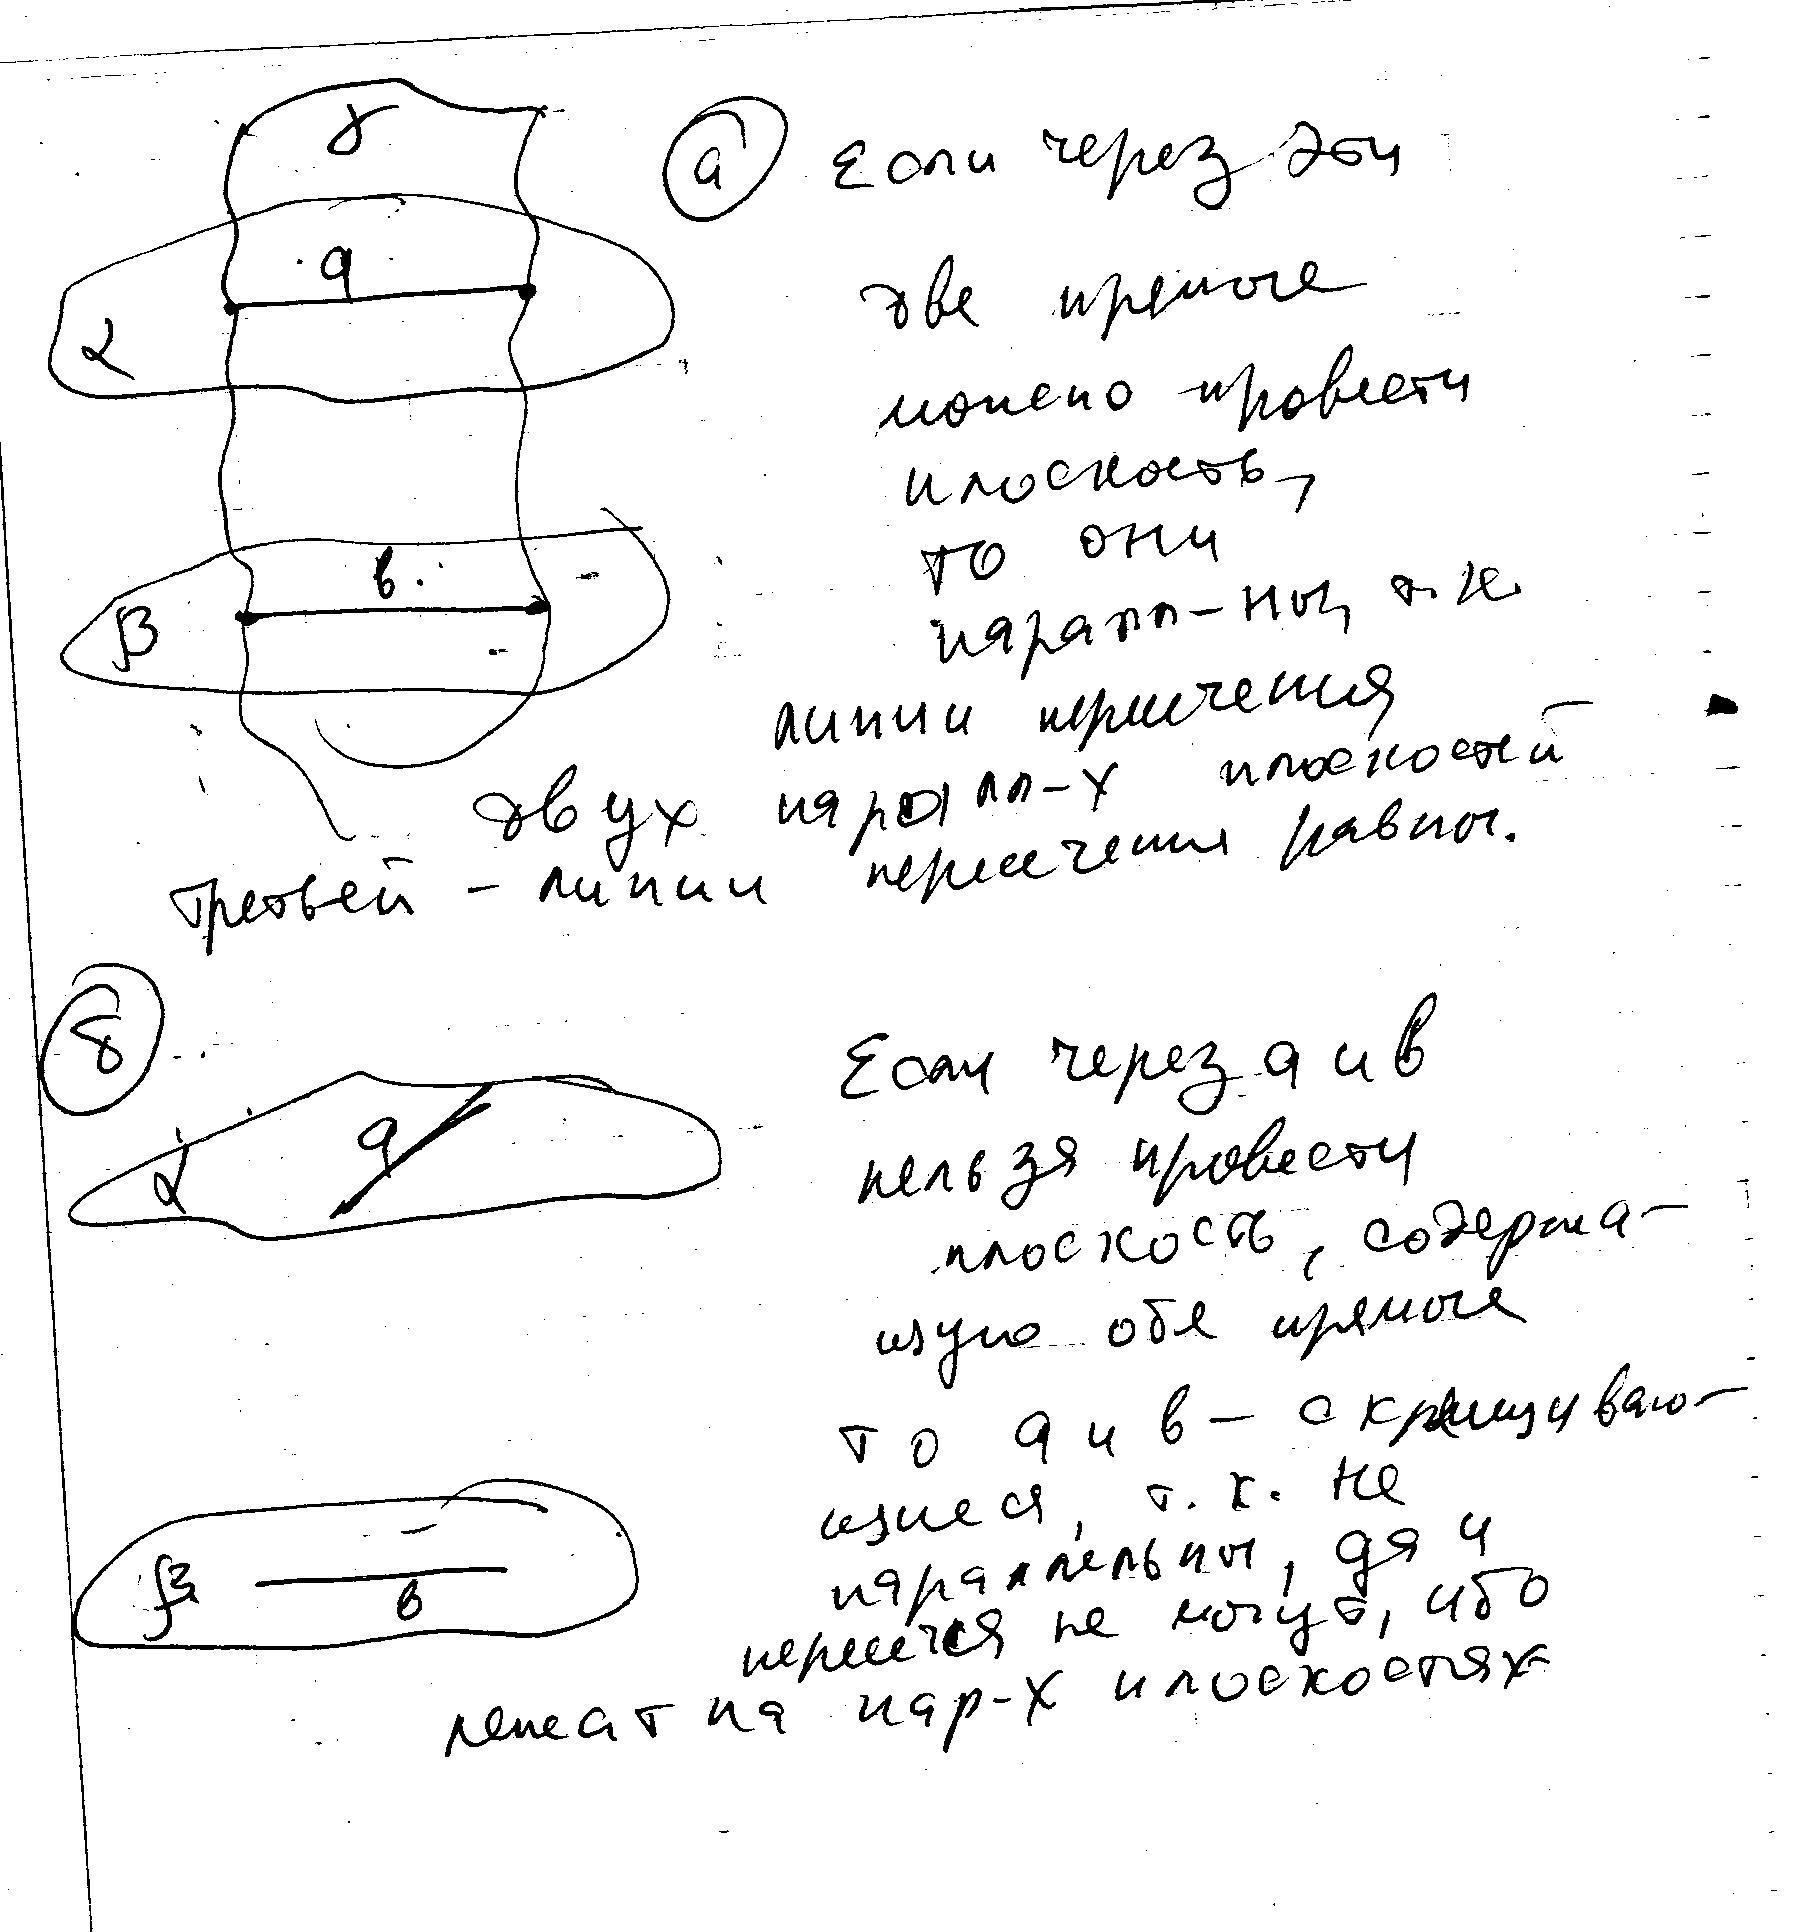 γ
а
Если через эти
а
две прямые
α
можно провести
плоскость,
то они
в
паралл-ны, т.к.
β
линии пересечения
двух паралл-х плоскостей
третьей - линии пересечения равны.
б
Если через а и в
а
нельзя провести
α
плоскость, содержа-
щую обе прямые
то а и в - скрещиваю-
щиеся, т.к. не
β
в
параллельны, да и
пересечься не могут, ибо
лежат на пар-х плоскостях